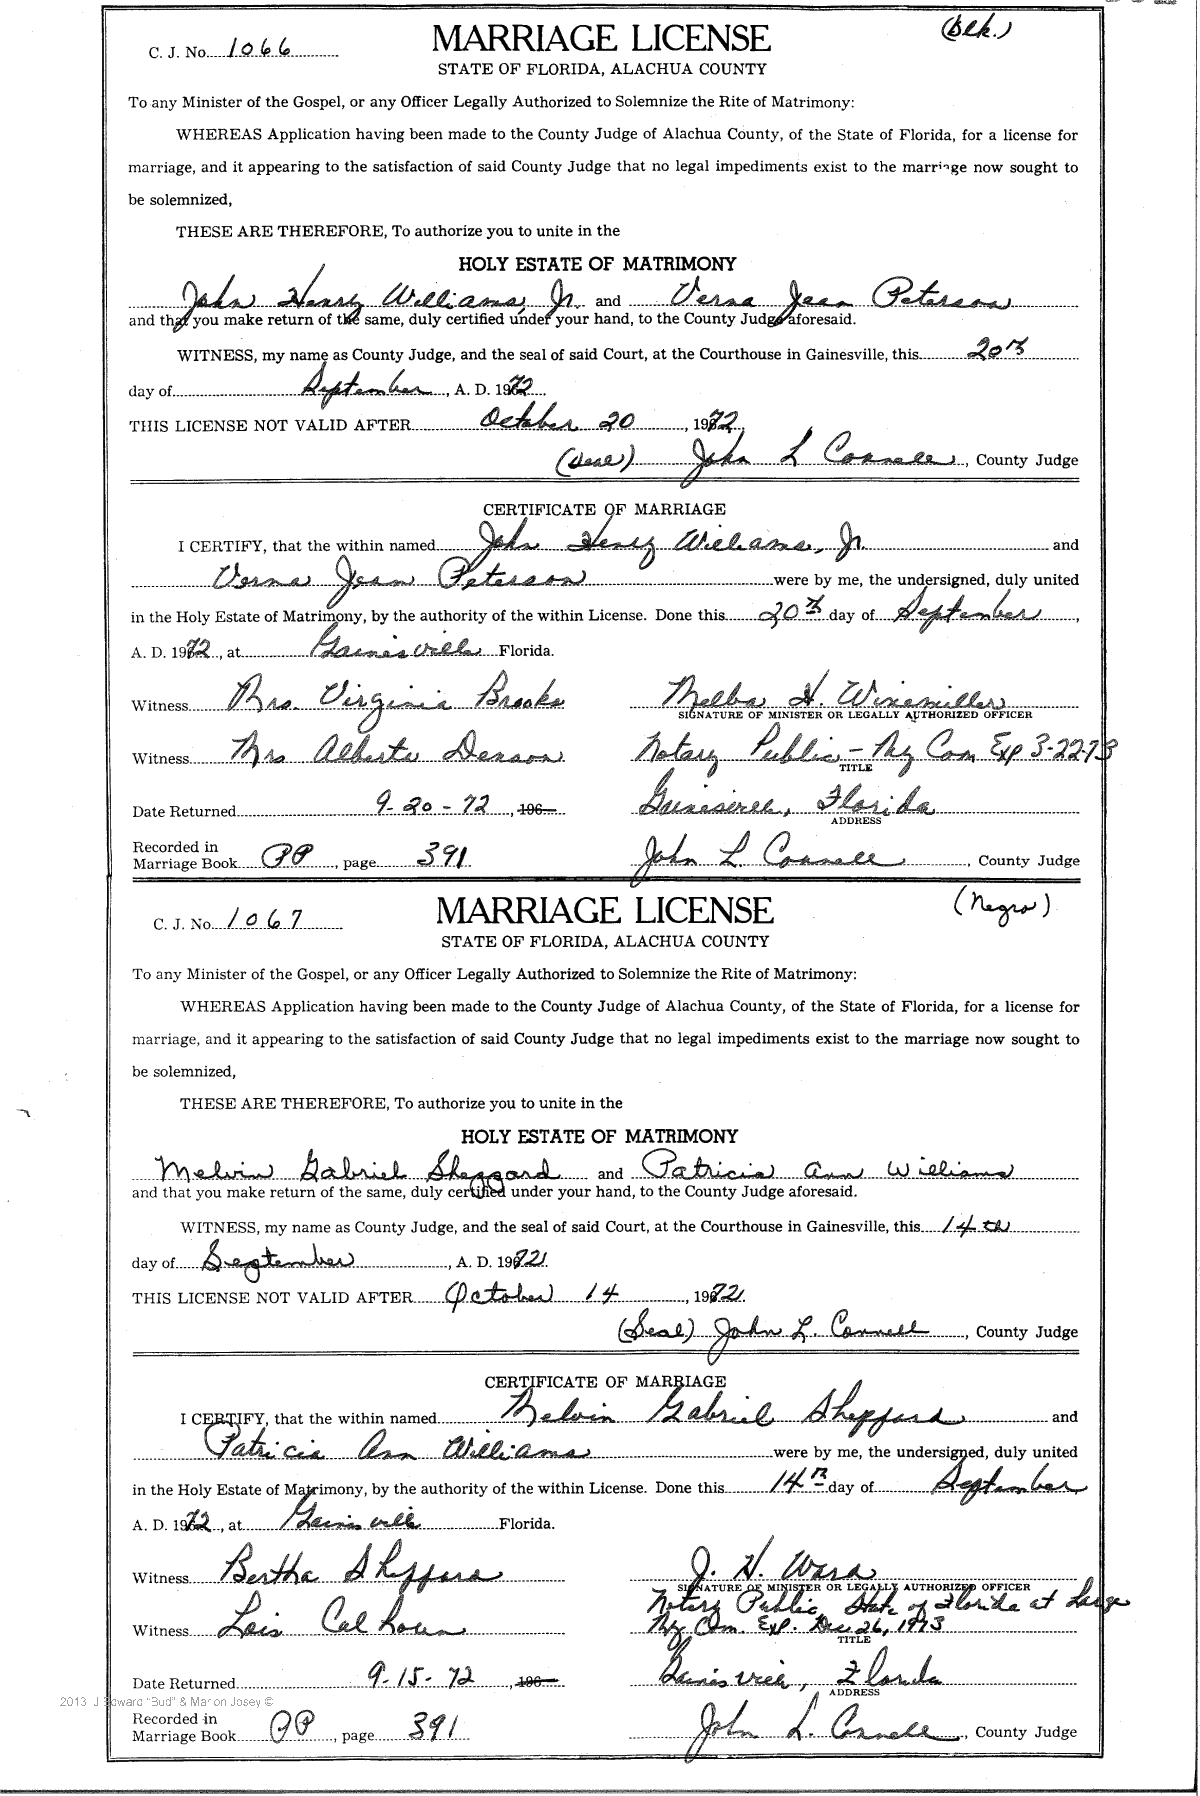 (Blk.)
C. J. No. 1066 MARRIAGE LICENSE
STATE OF FLORIDA, ALACHUA COUNTY
To any Minister of the Gospel, or any Officer Legally Authorized to Solemnize the Rite of Matrimony:
WHEREAS Application having been made to the County Judge of Alachua County, of the State of Florida, for a license for
marriage, and it appearing to the satisfaction of said County Judge that no legal impediments exist to the marriage now sought to
be solemnized,
THESE ARE THEREFORE, To authorize you to unite in the
HOLY ESTATE OF MATRIMONY
John Henry Williams, Jr. and Verna Jean Peterson
and that you make return of the same, duly certified under your hand, to the County Judge aforesaid.
WITNESS, my name as County Judge, and the seal of said Court, at the Courthouse in Gainesville, this 20th
day of September, A. D. 1972
THIS LICENSE NOT VALID AFTER October 20, 1972
(Seal) John L Connell, County Judge
CERTIFICATE OF MARRIAGE
I CERTIFY, that the within named John Henry Williams, Jr. and
Verna Jean Peterson were by me, the undersigned, duly united
in the Holy Estate of Matrimony, by the authority of the within License. Done this 20th day of September,
A. D. 1972, at Gainesville Florida.
Witness Mrs. Virginia Brooks Melba H. Winemiller
SIGNATURE OF MINISTER OR LEGALLY AUTHORIZED OFFICER
Witness Mrs Alberta Denson Notary Public - My Com Exp 3-22-73
TITLE
Date Returned 9-20-72, 196 Gainesville, Florida
ADDRESS
Recorded in
Marriage Book PP, page 391 John L Connell, County Judge
(Negro)
C. J. No. 1067 MARRIAGE LICENSE
STATE OF FLORIDA, ALACHUA COUNTY
To any Minister of the Gospel, or any Officer Legally Authorized to Solemnize the Rite of Matrimony:
WHEREAS Application having been made to the County Judge of Alachua County, of the State of Florida, for a license for
marriage, and it appearing to the satisfaction of said County Judge that no legal impediments exist to the marriage now sought to
be solemnized,
THESE ARE THEREFORE, To authorize you to unite in the
HOLY ESTATE OF MATRIMONY
Melvin Gabriel Sheppard and Patricia Ann Williams
and that you make return of the same, duly certified under your hand, to the County Judge aforesaid.
WITNESS, my name as County Judge, and the seal of said Court, at the Courthouse in Gainesville, this 14th
day of September, A. D. 1972.
THIS LICENSE NOT VALID AFTER October 14, 1972.
(Seal) John L. Connell, County Judge
CERTIFICATE OF MARRIAGE
I CERTIFY, that the within named Melvin Gabriel Sheppard and
Patricia Ann Williams were by me, the undersigned, duly united
in the Holy Estate of Matrimony, by the authority of the within License. Done this 14th day of September
A. D. 1972, at Gainesville Florida.
Witness Bertha Sheppard J. H. Ward
SIGNATURE OF MINISTER OR LEGALLY AUTHORIZED OFFICER
Notary Public, State of Florida at Large
Witness Lois Calhoun My Com. Exp. Dec 26, 1973
TITLE
Date Returned 9-15-72, 196 Gainesville, Florida
ADDRESS
2013 J Edward "Bud" & Marion Josey ©
Recorded in
Marriage Book PP, page 391 John L. Connell, County Judge